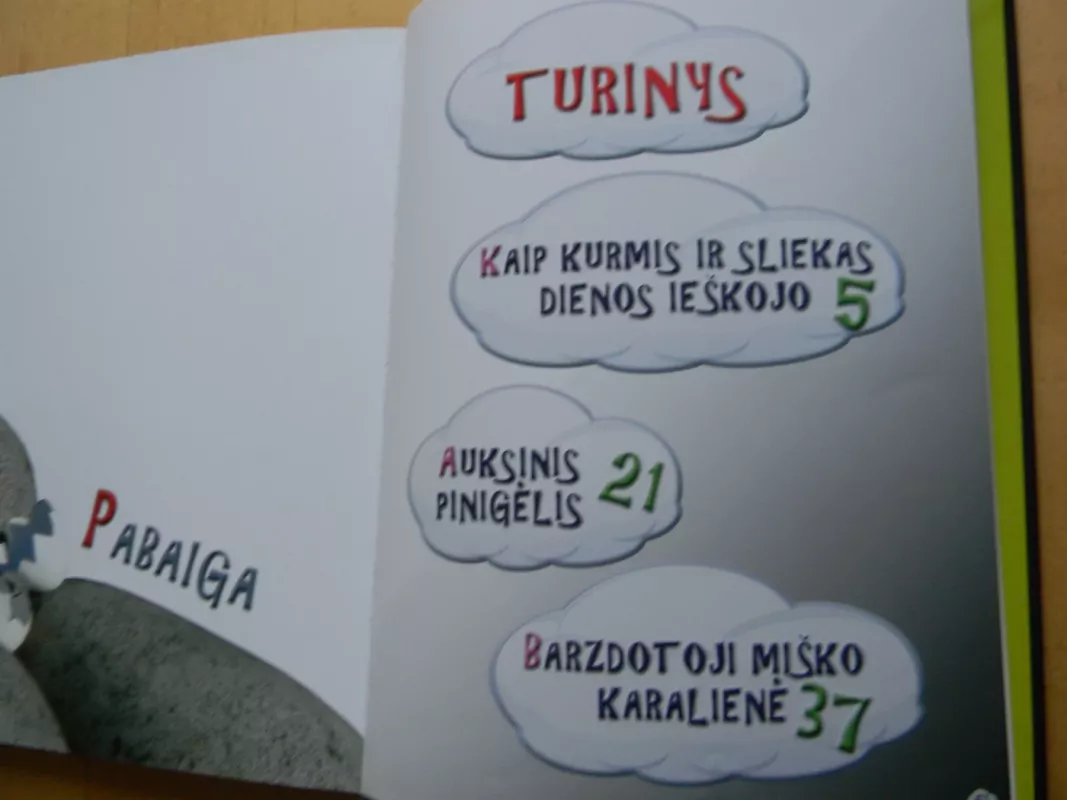 PABAIGA
TURINYS
KAIP KURMIS IR SLIEKAS
DIENOS IEŠKOJO 5
AUKSINIS
PINIGĖLIS 21
BARZDOTOJI MIŠKO
KARALIENĖ 37